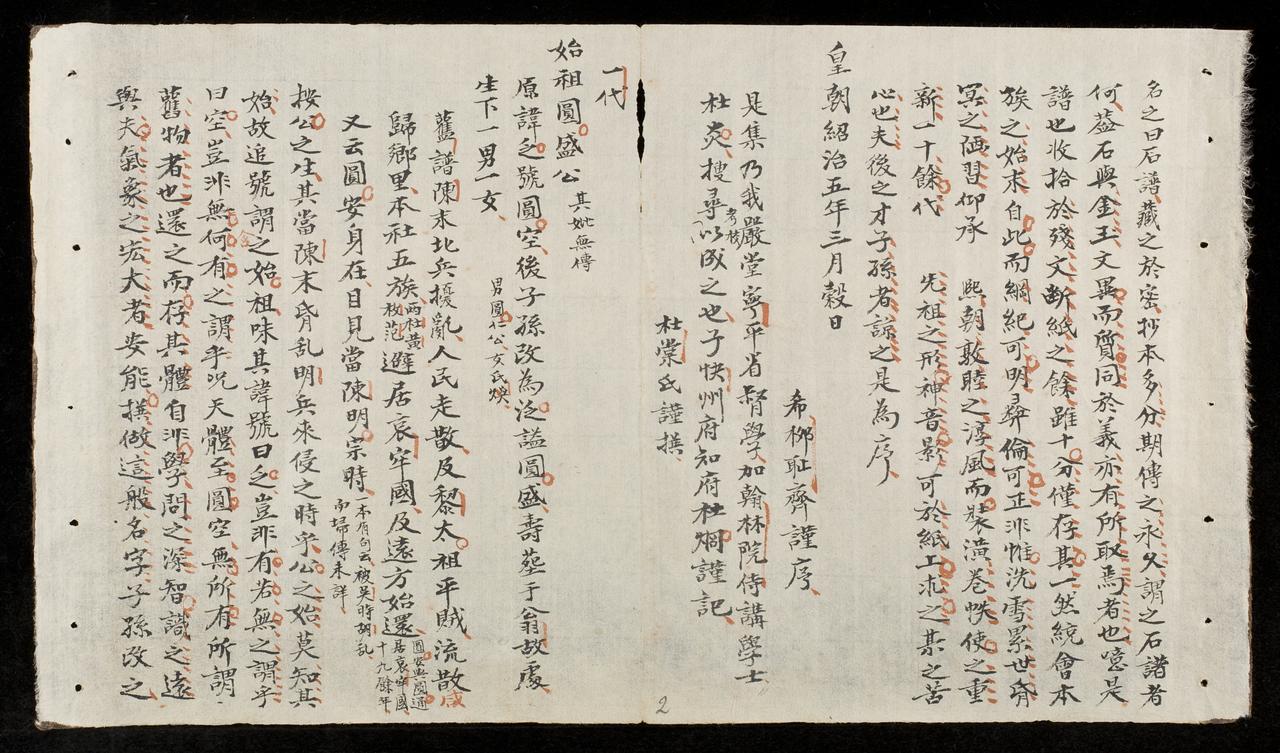 名之曰石譜藏之於密抄本多分期傳之永久謂之石譜者
何蓋石與金玉文異而質同於義亦有所取焉者也噫是
譜也收拾於殘文斷紙之餘雖十分僅存其一然統會本
族之始末自此而綱紀可明彛倫可正非惟洗雪累世昏
冥之陋習仰承 熙朝敦睦之淳風而裝潢卷帙使之重
新一十餘代 先祖之形神音影可於紙上求之某之苦
心也夫後之才子孫者諒之是為序
皇朝紹治五年三月穀日
希栁耻齊謹序
是集乃我嚴堂寧平省督學加翰林院侍講學士
杜炎搜尋考校以成之也子快州府知府杜烱謹記
杜棠氏謹撰
一代
始祖圓盛公 其妣無傳
原諱乏號圓空後子孫改為泛謚圓盛壽塟于翁故處
生下一男一女 男圓仁公女氏焕
舊譜陳末北兵擾亂人民走散及黎太祖平賊流散咸
歸鄉里本社五族 兩杜黃枚范 避居哀牢國及遠方始還 圓安與圓通居哀牢國十九餘年
又云圓安身在目見當陳明宗時 本有句云被吳時胡乱而歸傳未詳
按公之生其當陳末昏乱明兵來侵之時乎公之始莫知其
始故追號謂之始祖味其諱號曰乏豈非有若無之謂乎
曰空豈非無何有之謂乎况天體至圓空無所有所謂
舊物者也還之而存其體自非學問之深智識之遠
與夫氣象之宏大者安能撰做這般名字子孫改之
2